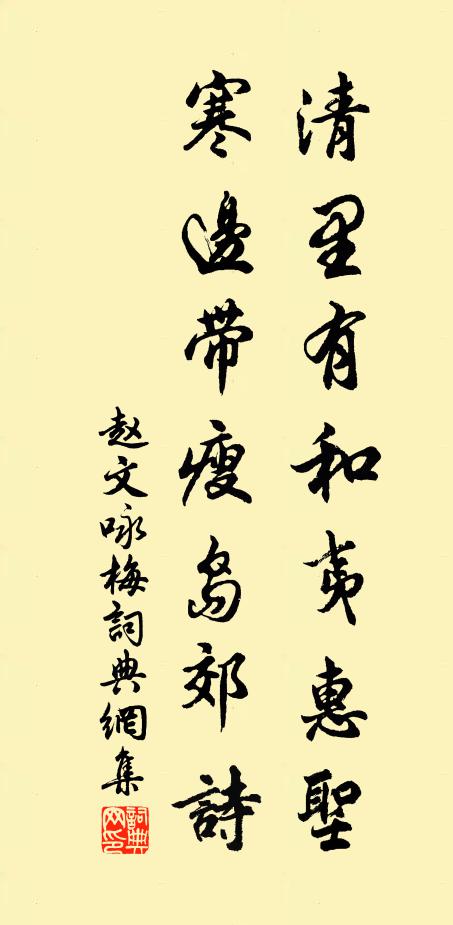 清里有和夷惠聖
寒邊帶瘦島郊詩
赵文咏梅詞典網集
詞典網印